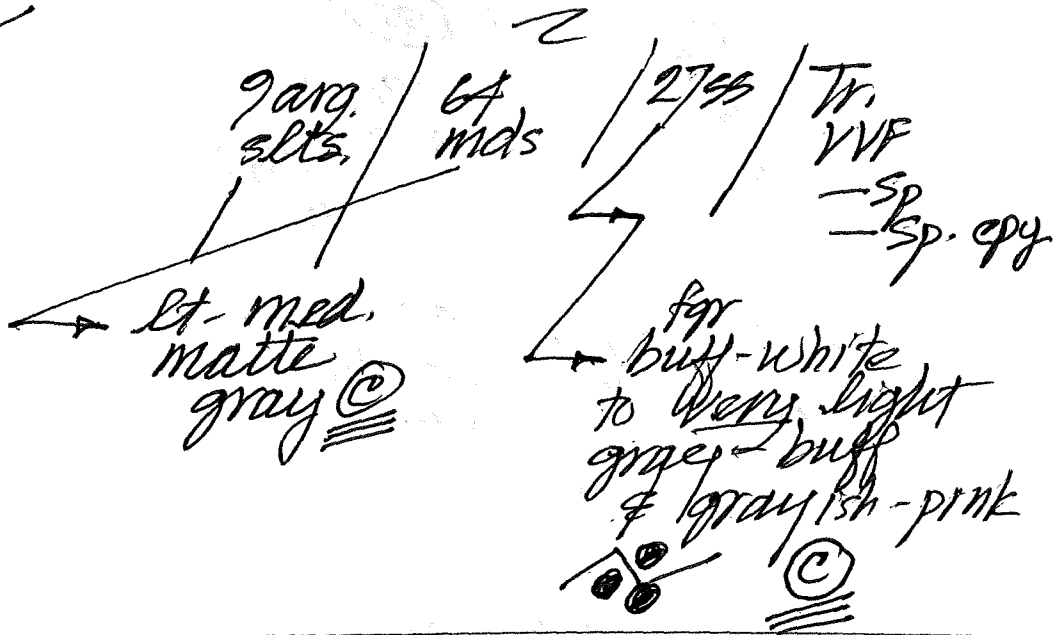 9 arg. slts. / 64 mds / 27 ss / Tr. VVF
— sp
— sp. cpy
lt-med. matte gray ©
fgr
buff-white
to very light
gray-buff
& grayish-pink
©